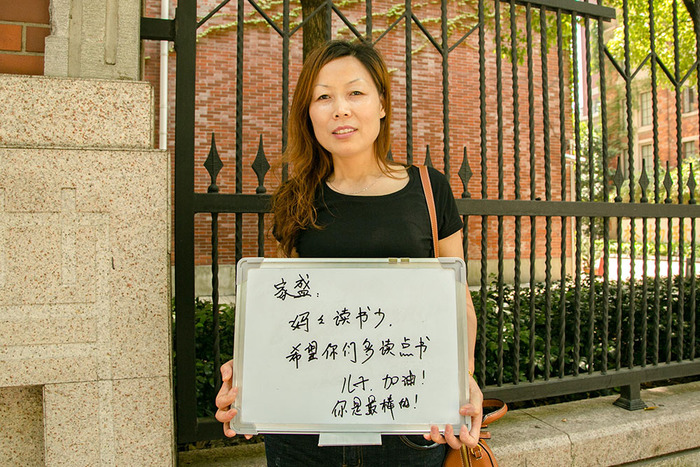 家盛：
妈々读书少.
希望你们多读点书
儿子.加油！
你是最棒的！